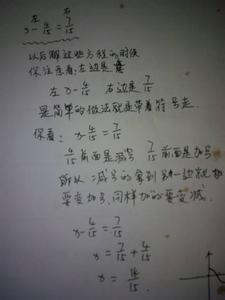 左 右
x-4/15=7/15
以后解这些方程的时候
你注意看:左边是
x-4/15 右边是7/15
是简单的做法就是带着符号走
你看: x-4/15=7/15
4/15前面是减号 7/15前面是加号
所以:减号的拿到另一边就
要变加号,同样加的要变减.
x-4/15=7/15
x=7/15+4/15
x=